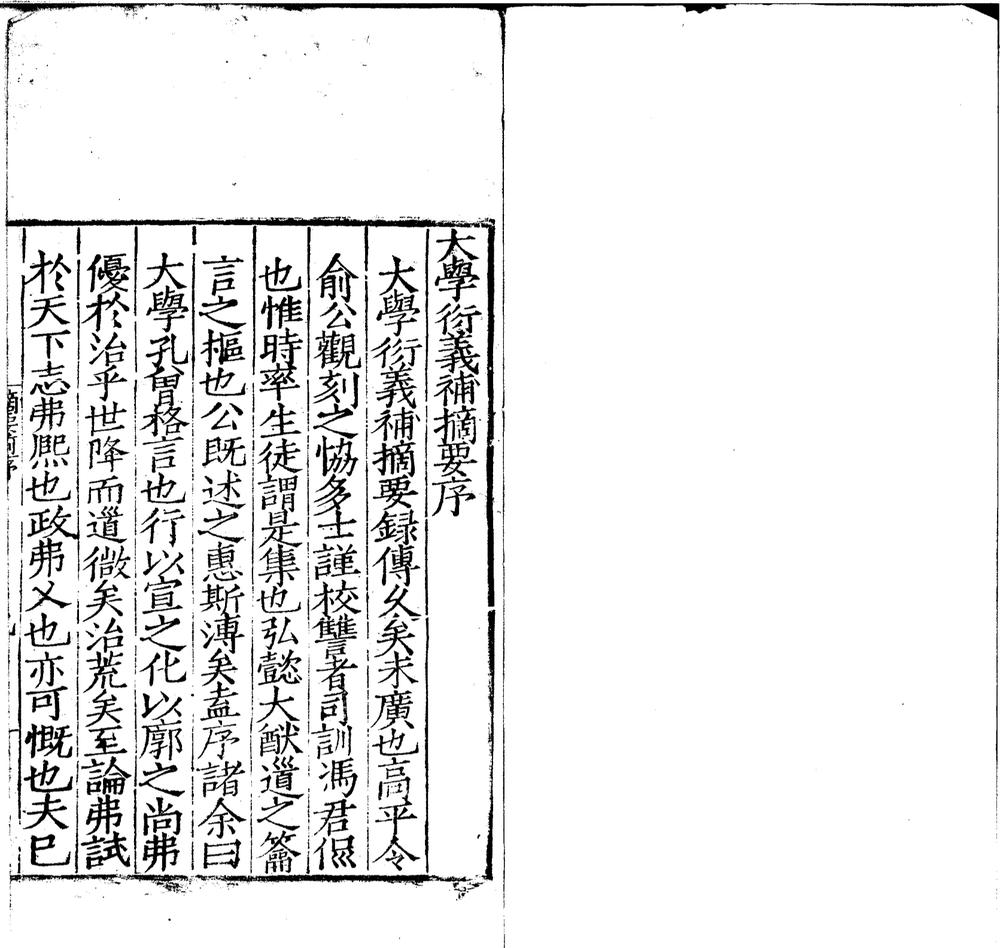 大學衍義補摘要序
大學衍義補摘要録傳久矣未廣也高平令
俞公觀刻之恊多士謹校讐者司訓馮君伬
也惟時率生徒謂是集也弘懿大猷道之籥
言之樞也公既述之惠斯溥矣盍序諸余曰
大學孔曾格言也行以宣之化以廓之尚弗
優於治乎世降而道微矣治荒矣至論弗試
於天下志弗熈也政弗乂也亦可慨也夫已